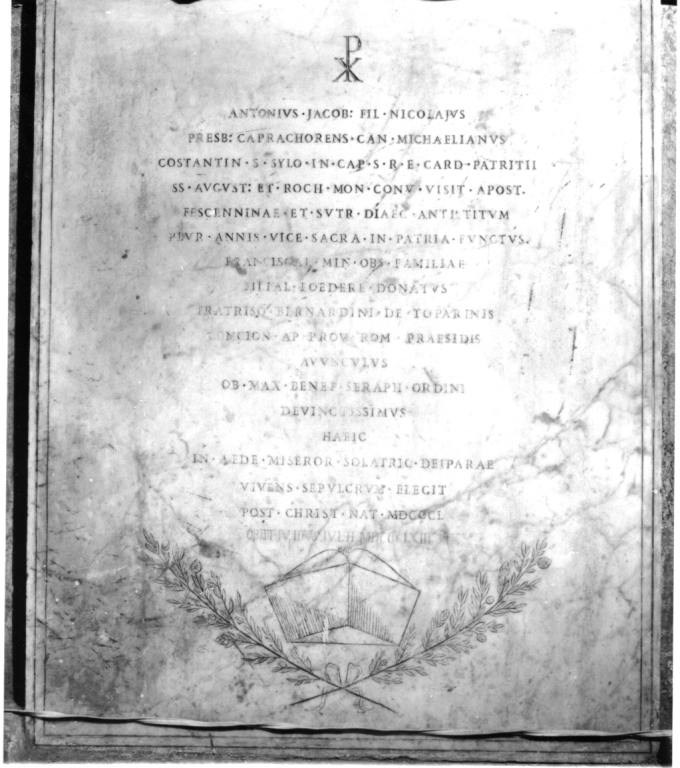 ANTONIVS · JACOB: FIL · NICOLAJVS
PRESB: CAPRACHORENS · CAN · MICHAELIANVS
COSTANTIN · S · SYLO · IN · CAP · S · R · E · CARD · PATRITII
SS · AVGVST: ET · ROCH · MON · CONV · VISIT · APOST.
FESCENNINAE · ET · SVTR · DIAEC · ANTISTITVM
PLVR · ANNIS · VICE · SACRA · IN · PATRIA · FVNCTVS.
MIN · OBS · FAMILIAE
FILIAL · FOEDERE · DONATVS
FRATRISQ · BERNARDINI · DE · TOPARINIS
CONCION · AP · PROV · ROM · PRAESIDIS
AVVNCVLVS
OB · MAX · BENEF · SERAPH · ORDINI
DEVINCTISSIMVS
IN · AEDE · MISEROR · SOLATRIC · DEIPARAE
VIVENS · SEPVLCRVM · ELEGIT
POST · CHRIST · NAT · MDCCCL